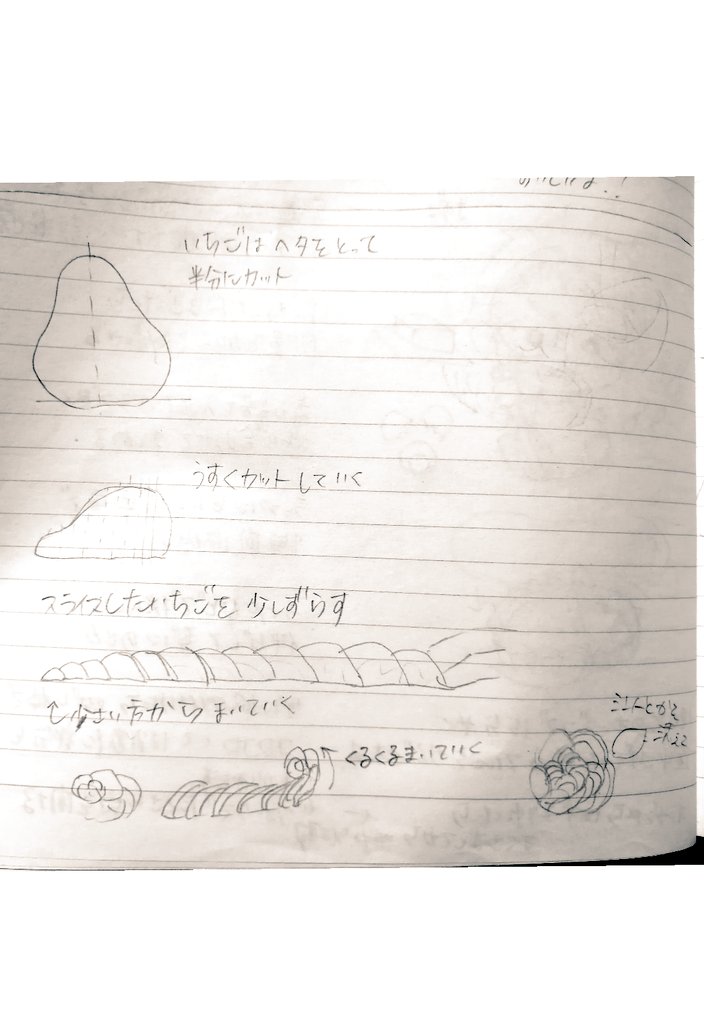 いちごはヘタをとって
半分にカット
うすくカットしていく
スライスしたいちごを少しずらす
小さい方からまいていく
くるくるまいていく
ミントとかを
添える